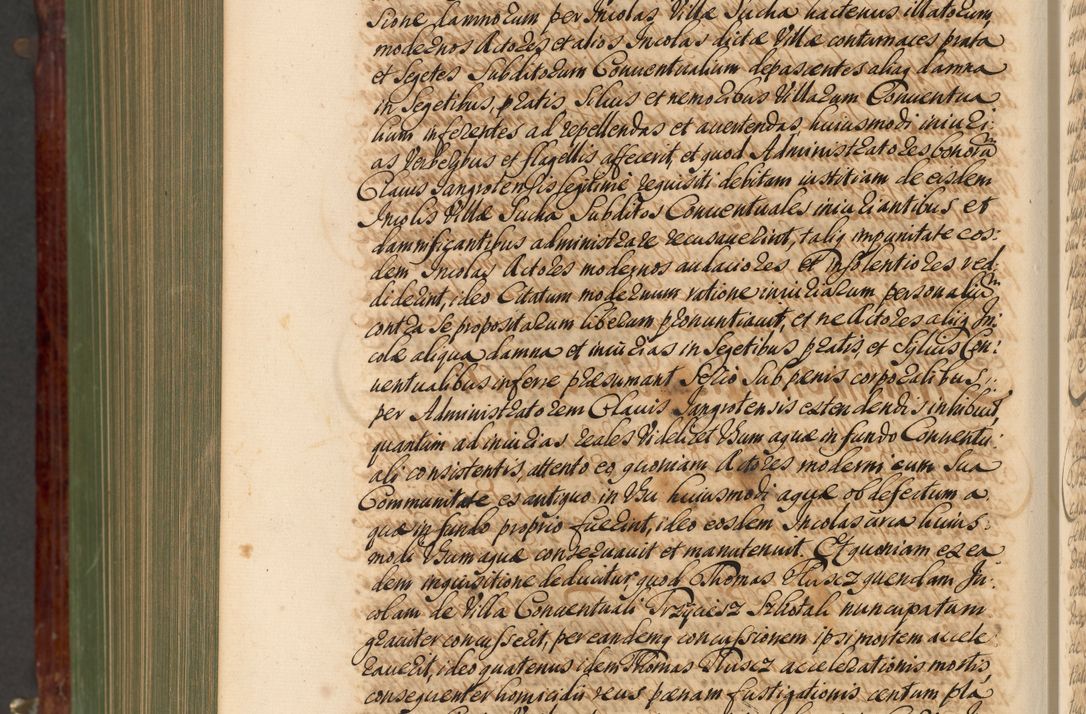 sione damnorum per Incolas Villæ Sucha hactenus illatorum
modernos Actores et alios Incolas dictæ Villæ contumaces prata
et segetes Subditorum Conventualium depascentes aliaq damna
in Segetibus, pratis, Silvis et nemoribus Villarum Conventua
lium inferentes ad repellendas et avertendas huiusmodi iniuri:
as Verberibus et flagellis affecerit, et quod Administratores bonorū
Clavis Jangrotensis legitimè requisiti debitam iustitiam de eisdem
Incolis Villæ Sucha Subditos Conventuales iniuriantibus et
damnificantibus administrare recusaverint, taliq impunitate eos:
dem Incolas Actores modernos audaciores et insolentiores red:
diderint, ideo Citatum modernum ratione iniuriarum personaliū
contra se propositarum liberum pronuntiavit, et ne Actores aliiq In:
colæ aliqua damna et iniurias in Segetibus pratis, et Sylvis Con:
ventualibus inferre præsumant Serio Sub pænis corporalibus
per Administratorem Clavis Jangrotensis extendendis inhibuit,
quantum ad iniurias reales Videlicet Usum aquæ in fundo Conventu:
ali consistentis, attento eo, quoniam Actores moderni cum Sua
Communitate ex antiquo in Usu huiusmodi aquæ ob defectum a:
quæ in fundo proprio fuerint, ideo eosdem Incolas circa huius:
modi Usum aquæ conservavit et manutenuit. Et quoniam ex ea:
dem inquisitione deducitur quod Thomas Kluscz quendam In:
colam de Villa Conventuali Szkotak nuncupatum
graviter concusserit, per eandemq concussionem ipsi mortem accele:
raverit, ideo quatenus idem Thomas Kluscz accelerationis mortis
consequenter homicidii reus pænam fustigationis centum pla